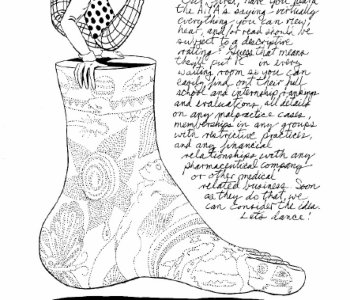 have you heard
the AMA's saying virtually
everything you can view,
hear, and/or read should be
subject to a descriptive
rating? Guess that means
they'll put PC's in every
waiting room so you can
easily find out their full
school and internship rankings
and evaluations, all details
on any malpractice cases,
memberships in any groups
with restrictive practices,
and any financial
relationships with any
pharmaceutical company
or other medical
related business. Soon
as they do that, we
can consider the idea.
Let's dance!